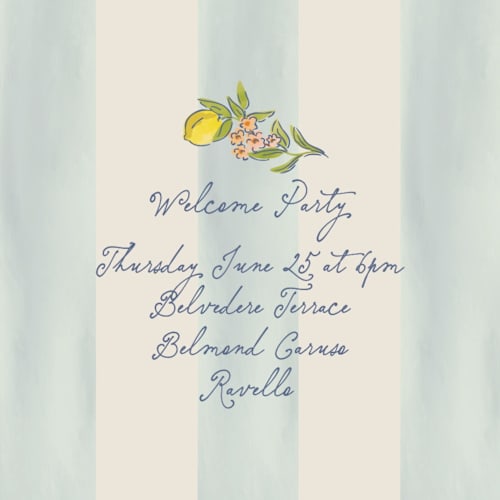 Welcome Party
Thursday June 25 at 6pm
Belvedere Terrace
Belmond Caruso
Ravello